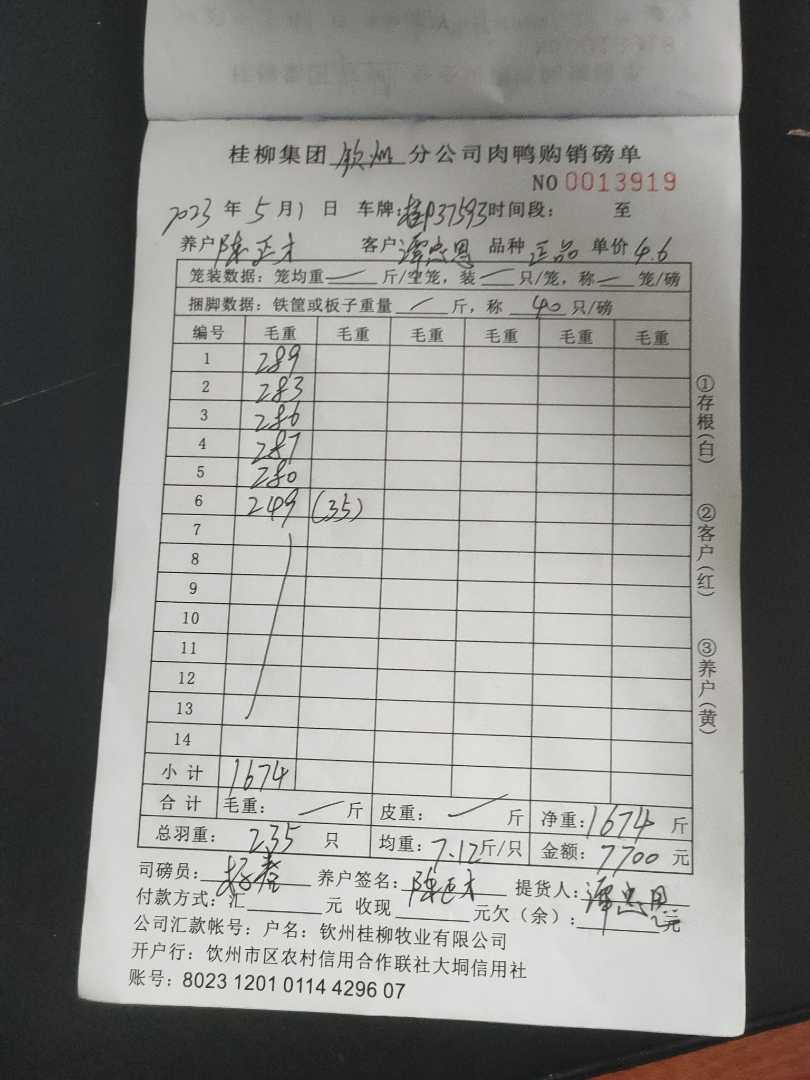 桂柳集团钦州分公司肉鸭购销磅单
NO 0013919
2023年5月1日 车牌:桂P37593时间段: 至
养户陈正才 客户谭忠恩 品种正品 单价4.6
笼装数据:笼均重 斤/空笼,装 只/笼,称 笼/磅
捆脚数据:铁筐或板子重量 斤,称 40 只/磅
编号 毛重 毛重 毛重 毛重 毛重 毛重
1 289
2 283
3 286
4 287
5 280
6 249 (35)
7
8
9
10
11
12
13
14
小计 1674
合计 毛重: 斤 皮重: 斤 净重:1674斤
总羽重: 235 只 均重:7.12斤/只 金额:7700元
司磅员: 养户签名:陈正才 提货人:谭忠恩
付款方式:汇 元 收现 元欠(余): 元
公司汇款帐号:户名:钦州桂柳牧业有限公司
开户行:饮州市区农村信用合作联社大垌信用社
账号:8023 1201 0114 4296 07
①存根(白) ②客户(红) ③养户(黄)